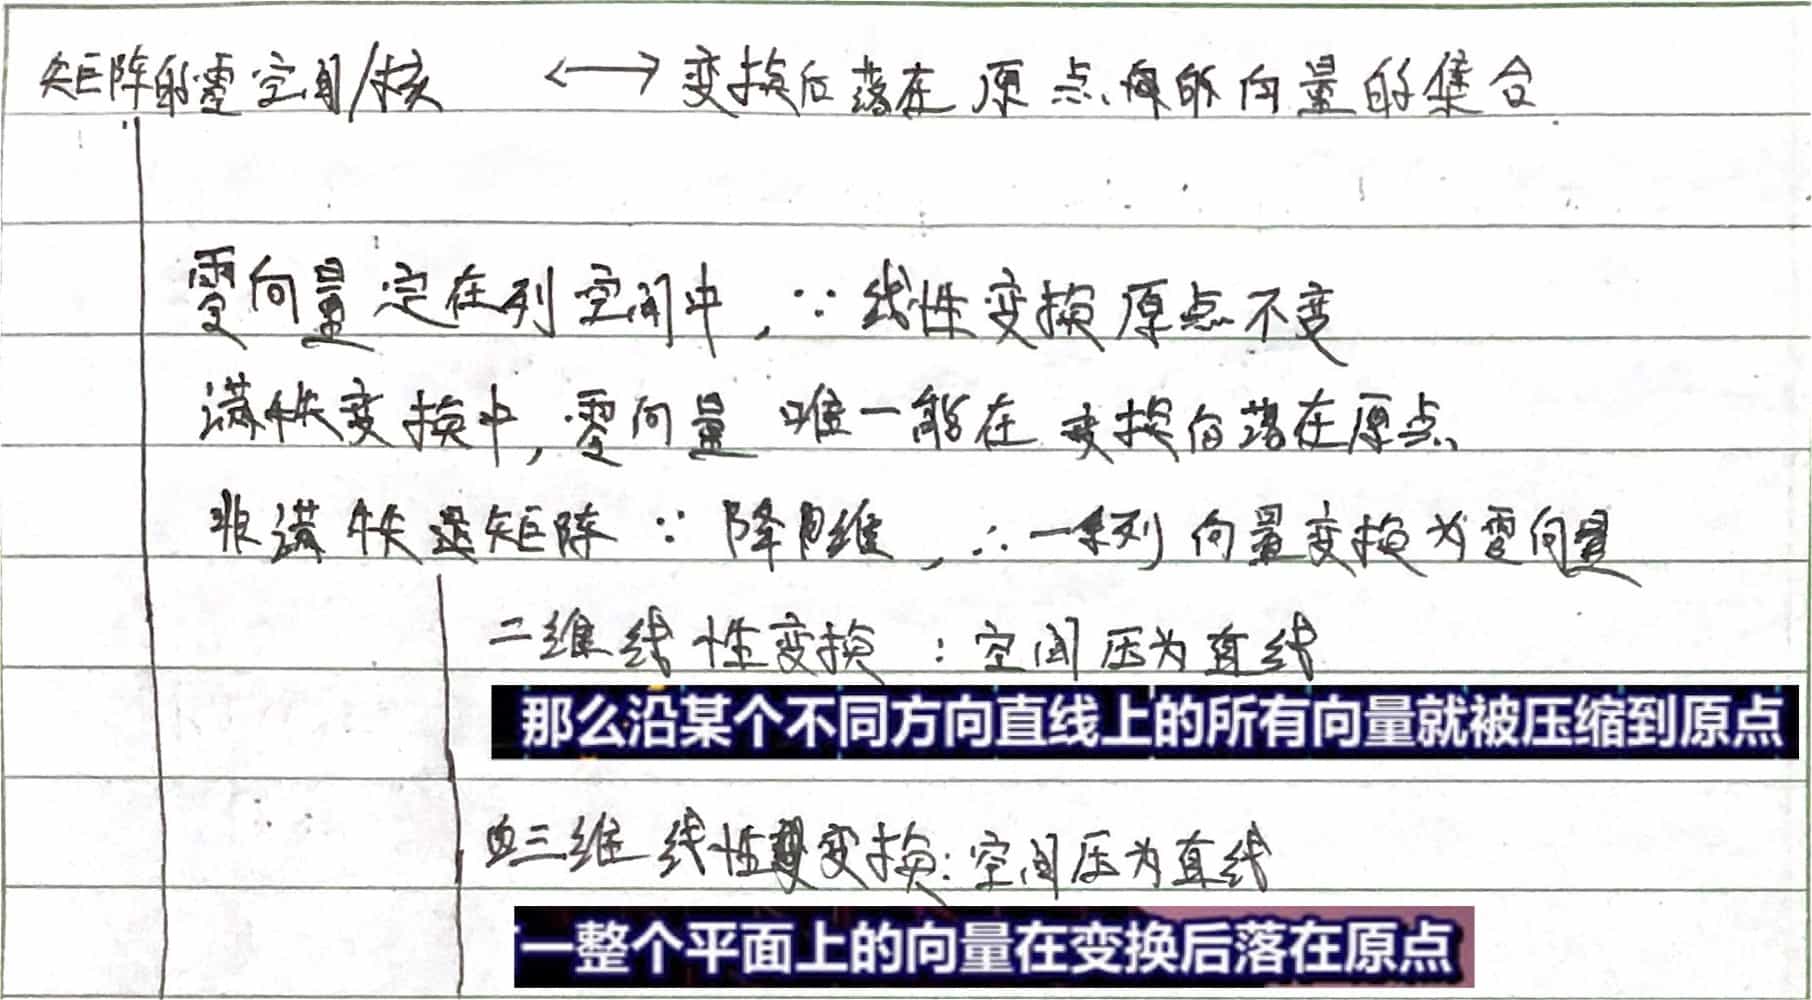 矩阵的零空间/核 ⟷ 变换后落在原点的向量的集合
零向量定在列空间中, ∵ 线性变换原点不变
满秩变换中, 零向量唯一能在变换后落在原点
非满秩矩阵 ∵ 降维, ∴ 一系列向量变换为零向量
二维线性变换 : 空间压为直线
那么沿某个不同方向直线上的所有向量就被压缩到原点
三维线性变换: 空间压为直线
一整个平面上的向量在变换后落在原点